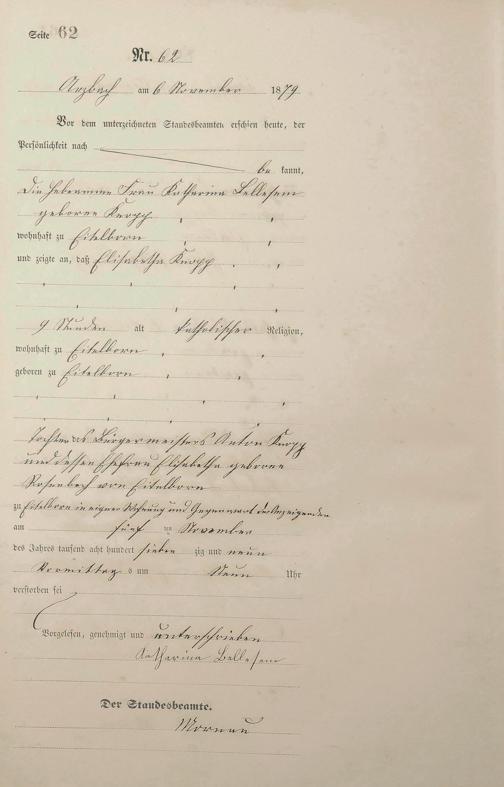 Seite 62
Nr. 62
Arzbach am 6 November 1879
Vor dem unterzeichneten Standesbeamten erschien heute, der
Persönlichkeit nach
be kannt,
die Hebeamme Frau Katharina Bellesem
geborene Knopp
wohnhaft zu Eitelborn
und zeigte an, daß Elisabetha Knopp
9 Stunden alt katholischer Religion,
wohnhaft zu Eitelborn
geboren zu Eitelborn
Tochter des Bürgermeisters Anton Knopp
und dessen Ehefrau Elisabetha geborene
Rosenbach von Eitelborn
zu Eitelborn in eigner Wohnung und Gegenwart der Anzeigenden
am fünf ten November
des Jahres tausend acht hundert sieben zig und neun
Vormittag s um Neun Uhr
verstorben sei
Vorgelesen, genehmigt und unterschrieben
Katharina Bellesem
Der Standesbeamte.